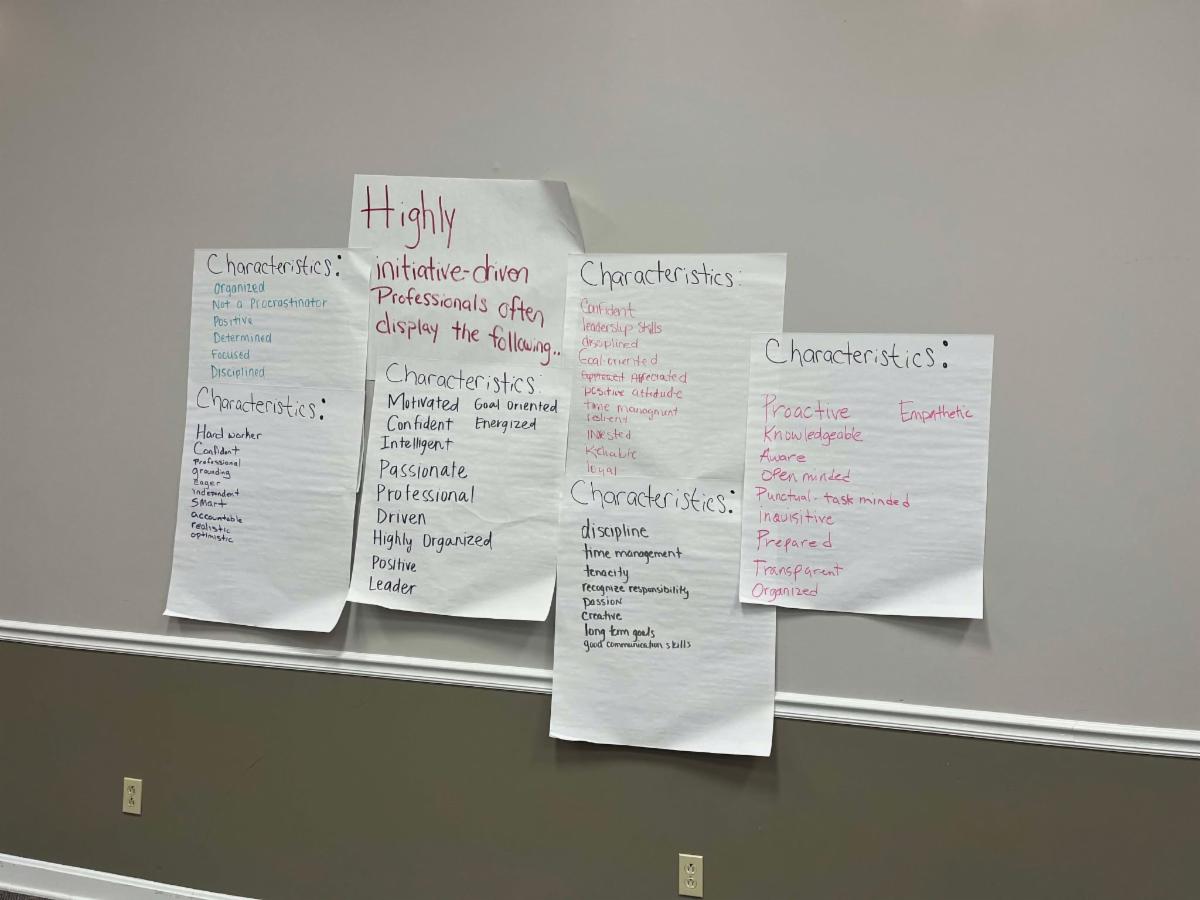 Highly
initiative-driven
Professionals often
display the following..
Characteristics:
Organized
Not a Procrastinator
Positive
Determined
Focused
Disciplined
Characteristics:
Hard worker
Confident
Professional
grounding
Eager
independent
Smart
accountable
realistic
optimistic
Characteristics:
Motivated Goal Oriented
Confident Energized
Intelligent
Passionate
Professional
Driven
Highly Organized
Positive
Leader
Characteristics:
Confident
leadership skills
disciplined
Goal-oriented
positive attitude
time managment
Reliable
loyal
Characteristics:
discipline
time management
tenacity
recognize responsibility
passion
creative
long term goals
good communication skills
Characteristics:
Proactive Empathetic
Knowledgeable
Aware
open minded
Punctual- task minded
inquisitive
Prepared
Transparent
Organized